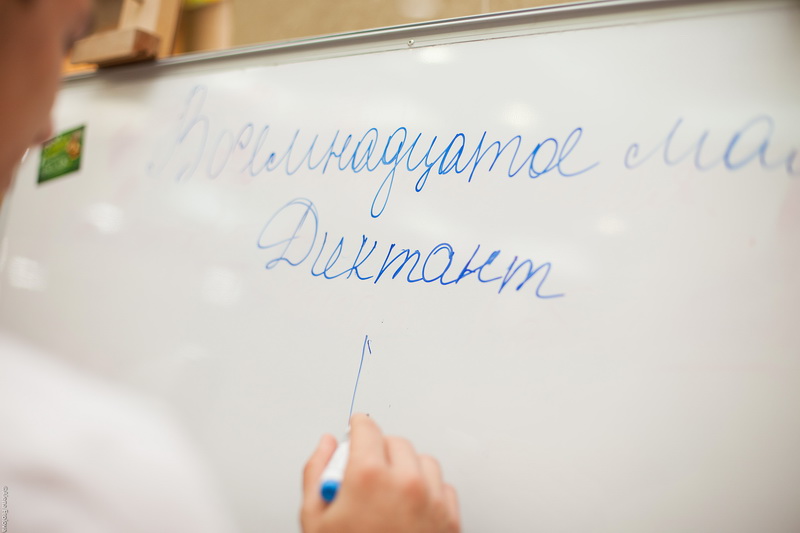 Восемнадцатое мая
Диктант